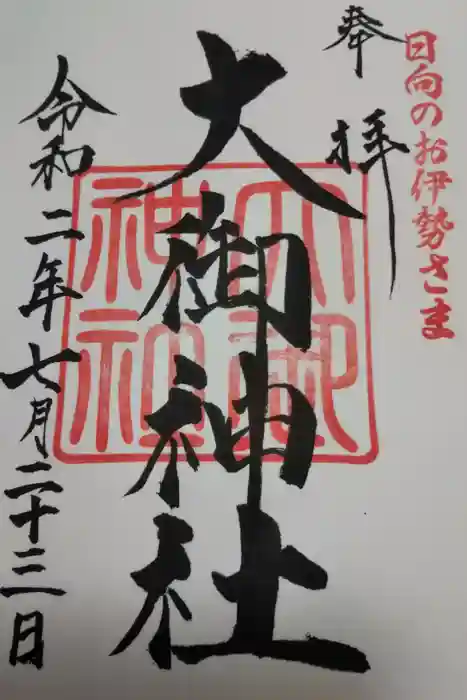 日向のお伊勢さま
奉拝
大御神社
大御神社
令和二年七月二十三日